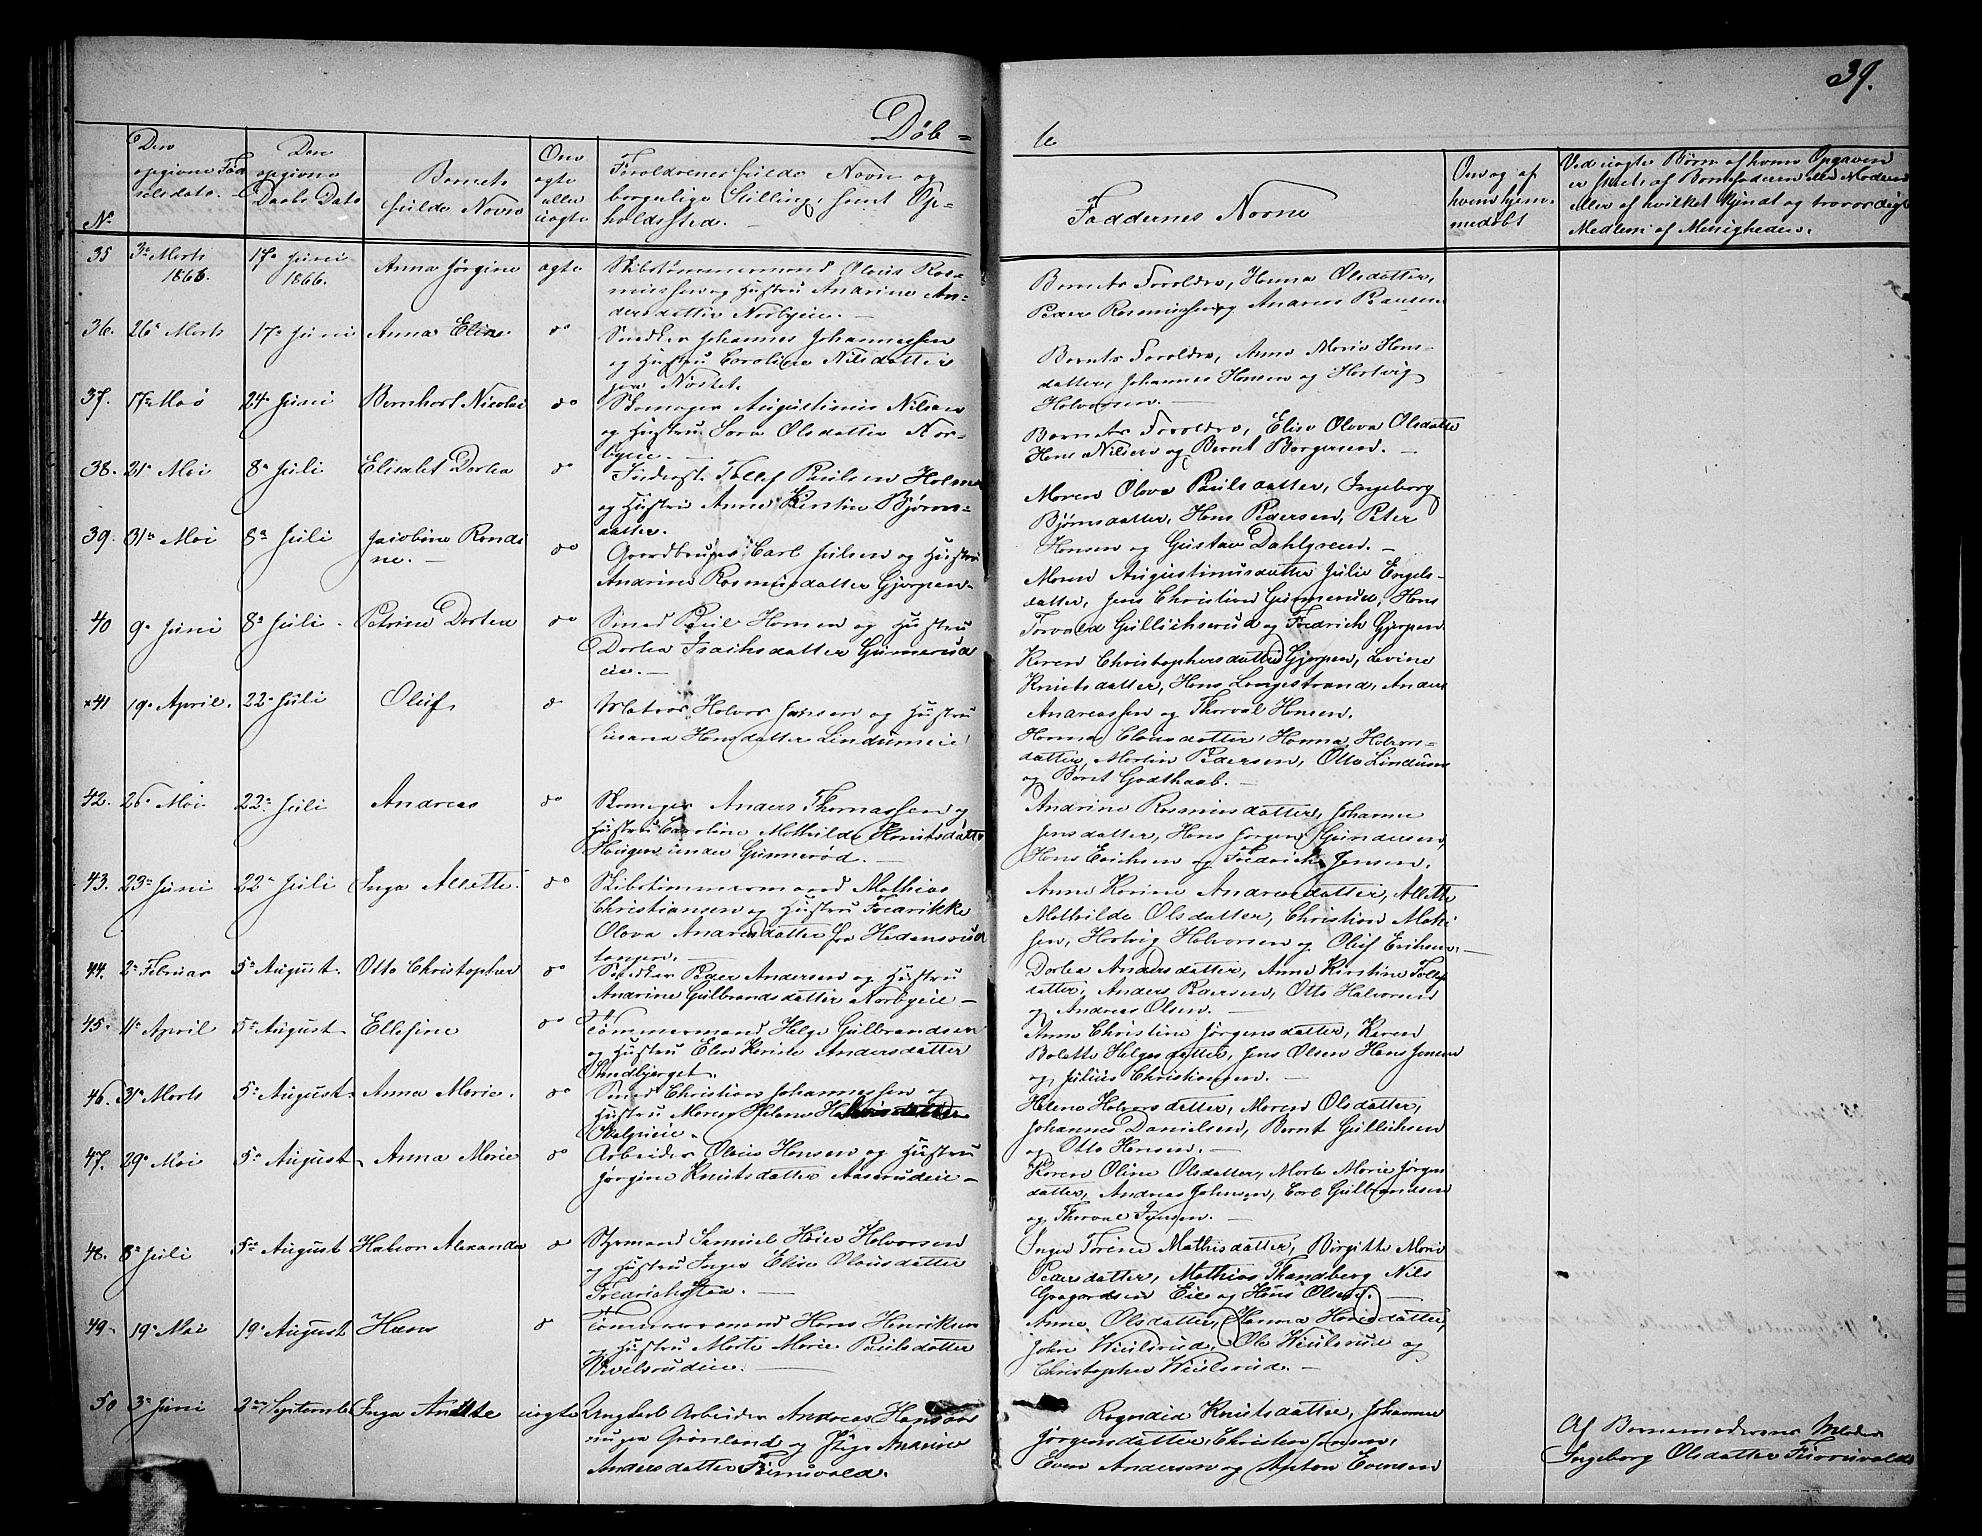 39.
Döb =
te
No
Den opgivne Fødselsdato.
Den opgivne Daabs Dato
Barnets fulde Navn
Om ægte eller uægte
Forældrenes fulde Navn og borgerlige Stilling, samt Opholdssted.
Faddernes Navne
Om og af hvem hjemmedøbt
Ved uægte Børn af hvem Opgaven er skeet: af Barnefaderen eller Moderen eller af hvilket kjendt og troværdigt Medlem af Menigheden.
35 3die Marts 1866. 17de Juni 1866. Anna Jørgine ægte
Skibstømmermand Olaus Ras-
mussen og Hustru Andrine An-
dersdatter Norbyeie.
Barnets Forældre, Hanna Olsdatter,
Peder Rasmussen og Andreas Paulsen
36. 26de Marts 17de Juni Anna Eline do
Snedker Johannes Johannessen
og Hustru Caroline Nilsdatter
paa Næstet.
Barnets Forældre, Anne Marie Hans-
datter, Johannes Hansen og Hartvig
Halvorsen.
37. 17de Mai 24de Juni Bernhart Nicolai do
Skomager Augustinus Nilsen
og Hustru Sara Olsdatter Nor-
byeie.
Barnets Forældre, Elise Olava Olsdatter
Hans Nilsen og Bernt Borgersen.
38. 21de Mai 8de Juli Elisabet Dortea do
Inderst Tollef Paulsen Holme
og Hustru Anne Kirstine Bjørns-
datter.
Maren Olava Paulsdatter, Ingeborg
Bjørnsdatter, Hans Pedersen, Peter
Hansen og Gustav Dahlgreen.
39. 31te Mai 8de Juli Jacobine Randi
ne. do
Gaardbruger Carl Julsen og Hustru
Andrine Rasmusdatter Gjerpen
Maren Augustinusdatter Julie Engels-
datter, Jens Christian Gunnerud, Hans
Torvald Gullichserud og Fredrich Gjerpen
40 9de Juni 8de Juli Petrine Dortea do
Smed Paul Hansen og Hustru
Dortea Isachsdatter Gunnerud
eie.
Karen Christophersdatter Gjerpen, Levine
Knutsdatter, Hans Langestrand, Anders
Andreassen og Thorval Hansen.
×41 19de April. 22de Juli Oluf do
Matros Halvor Jansen og Hustru
Susana Hansdatter Lindumeie
Hanna Clausdatter, Hanna Halvors-
datter, Martin Pedersen, Otto Lindum
og Bernt Godthaab.
42. 26de Mai 22de Juli Andreas do
Skomager Anders Thomassen og
Hustru Caroline Mathilde Knutsdatter
Haugen under Gunnerød.
Andrine Rasmusdatter, Johanne
Jensdatter, Hans Jørgen Gundersen,
Hans Erichsen og Fredrich Jensen.
43. 23de Juni 22de Juli Inga Alette do
Skibstømmermand Mathias
Christiansen og Hustru Fredrikke
Olava Andreasdatter fra Hedensrud
tangen.
Anne Karine Andreasdatter, Alette
Mathilde Olsdatter, Christian Mathi
sen, Hartvig Halvorsen og Oluf Eriksen.
44. 2de Februar 5te August. Otto Christopher do
Snedker Peder Andersen og Hustru
Andrine Gulbrandsdatter Norbyeie
Dortea Andersdatter, Anne Kirstine Tollefs
datter, Anders Pedersen, Otto Halvorsen
og Andreas Olsen.
45. 11te April 5te August Ellefine do
Tømmermand Helge Gulbrandsen
og Hustru Elen Karine Andersdatter
Sandbjerget.
Anne Christine Jørgensdatter, Karen
Bolette Helgesdatter, Jens Olsen Hans Jensen
og Julius Christiansen.
46. 31te Marts 5te August Anna Marie. do
Smed Christian Johannessen og
Hustru Maren Helene Halvorsdatter
Maren Olsdatter,
Helene Halvorsdatter,
Johannes Danielsen, Bernt Gullichsen
og Otto Hansen.
47. 29de Mai 5te August Anna Marie do
Arbeider Olaus Hansen og Hustru
Jørgine Knutsdatter Aaserudeie
Karen Oline Olsdatter, Marte Marie Jørgens
datter, Andreas Johnsen, Carl Gulbrandsen
og Thorval Jensen.
48. 8de Juli 5te August Halvor Alexander do
Styrmand Samuel Høier Halvorsen
og Hustru Inger Elise Olausdatter
Fredrichstad.
Inger Torine Mathisdatter, Birgitte Marie
Pedersdatter, Mathias Strandberg Nils
Gregersen Eie og Hans Olsen.
49. 19de Mai 19de August Hans do
Tømmermand Hans Henriksen
og Hustru Marte Marie Paulsdatter
Wivelsrudeie.
Anne Olsdatter, Hanna Hansdatter,
John Wiulsrud, Ole Wiulsrud og
Christopher Wiulsrud.
50 3die Juni 2den September Inga Anette uægte
Ungkarl Arbeider Andreas Hansen
paa Grønland og Pige Anarine
Andersdatter Furuvald.
Ragndid Knutsdatter, Johanne
Jørgensdatter, Christen Jensen,
Even Andersen og Anton Evensen
Af Barnemoderens Moder
Ingeborg Olsdatter Furuvald